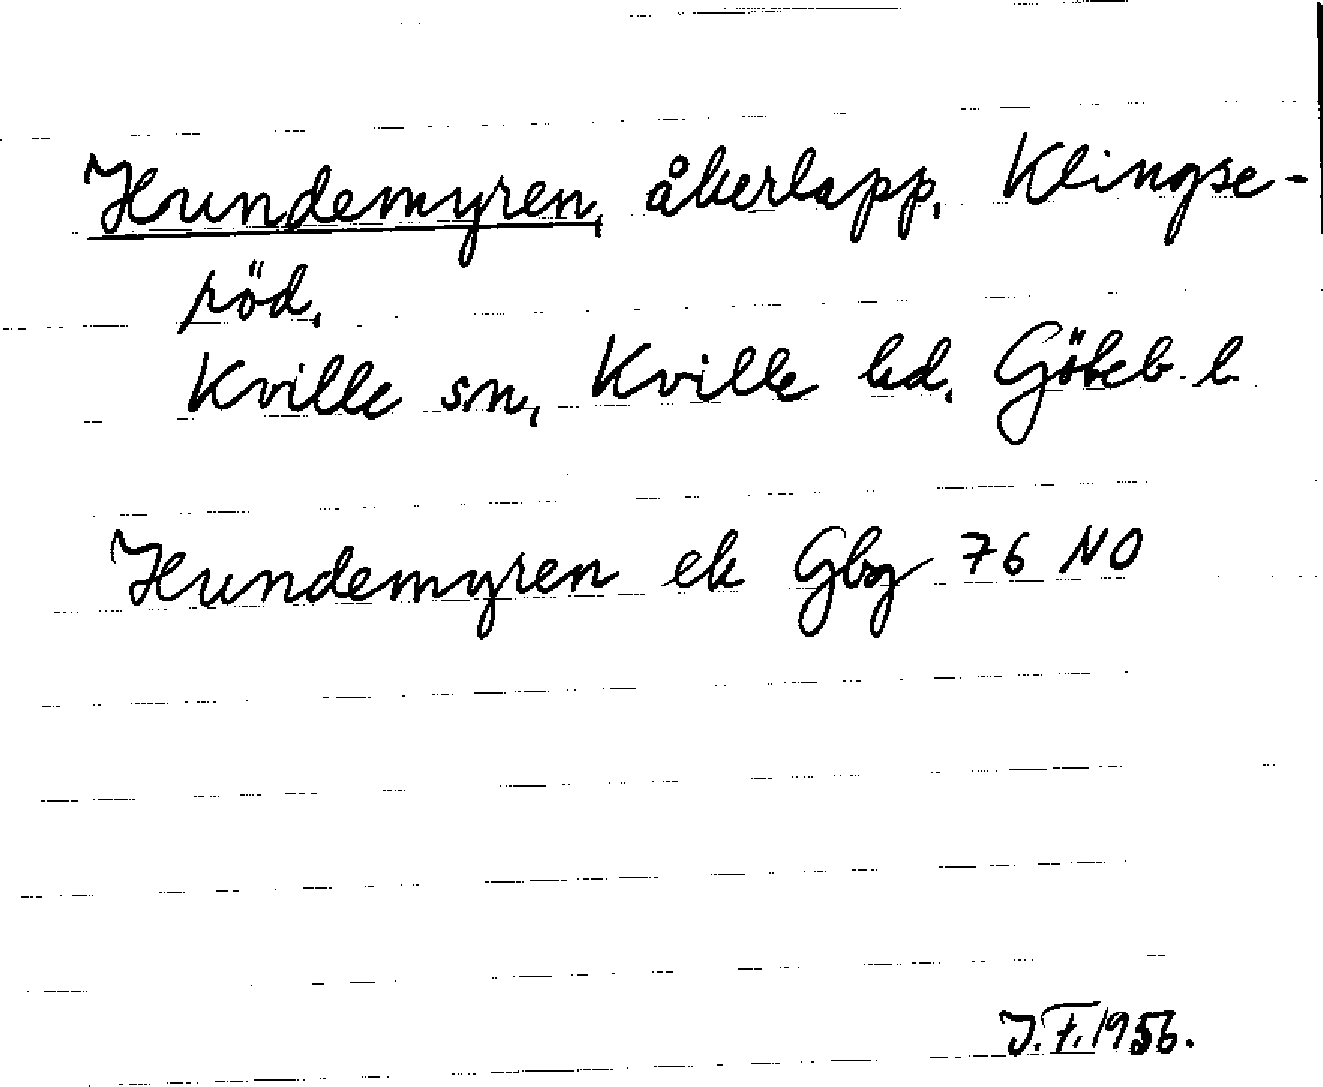 Hundemyren, åkerlapp, Klingse-
röd,
Kville sn, Kville hd. Göteb. l.
Hundemyren ek Gbg 76 NO
J.F. 1956.